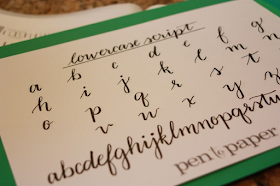 lowercase script
a b c d e f g
h i j k l m n
o p q r s t u
v w x y z
abcdefghijklmnopqrstu
pen to paper